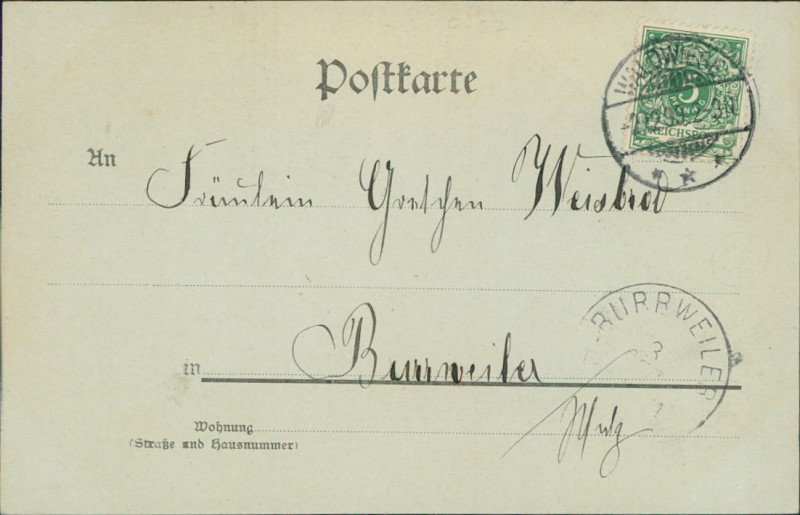 Postkarte
5
REICHSPOST
An Fräulein Gretchen Weisbrod
BURRWEILER
in Burrweiler
Wohnung
(Straße und Hausnummer)